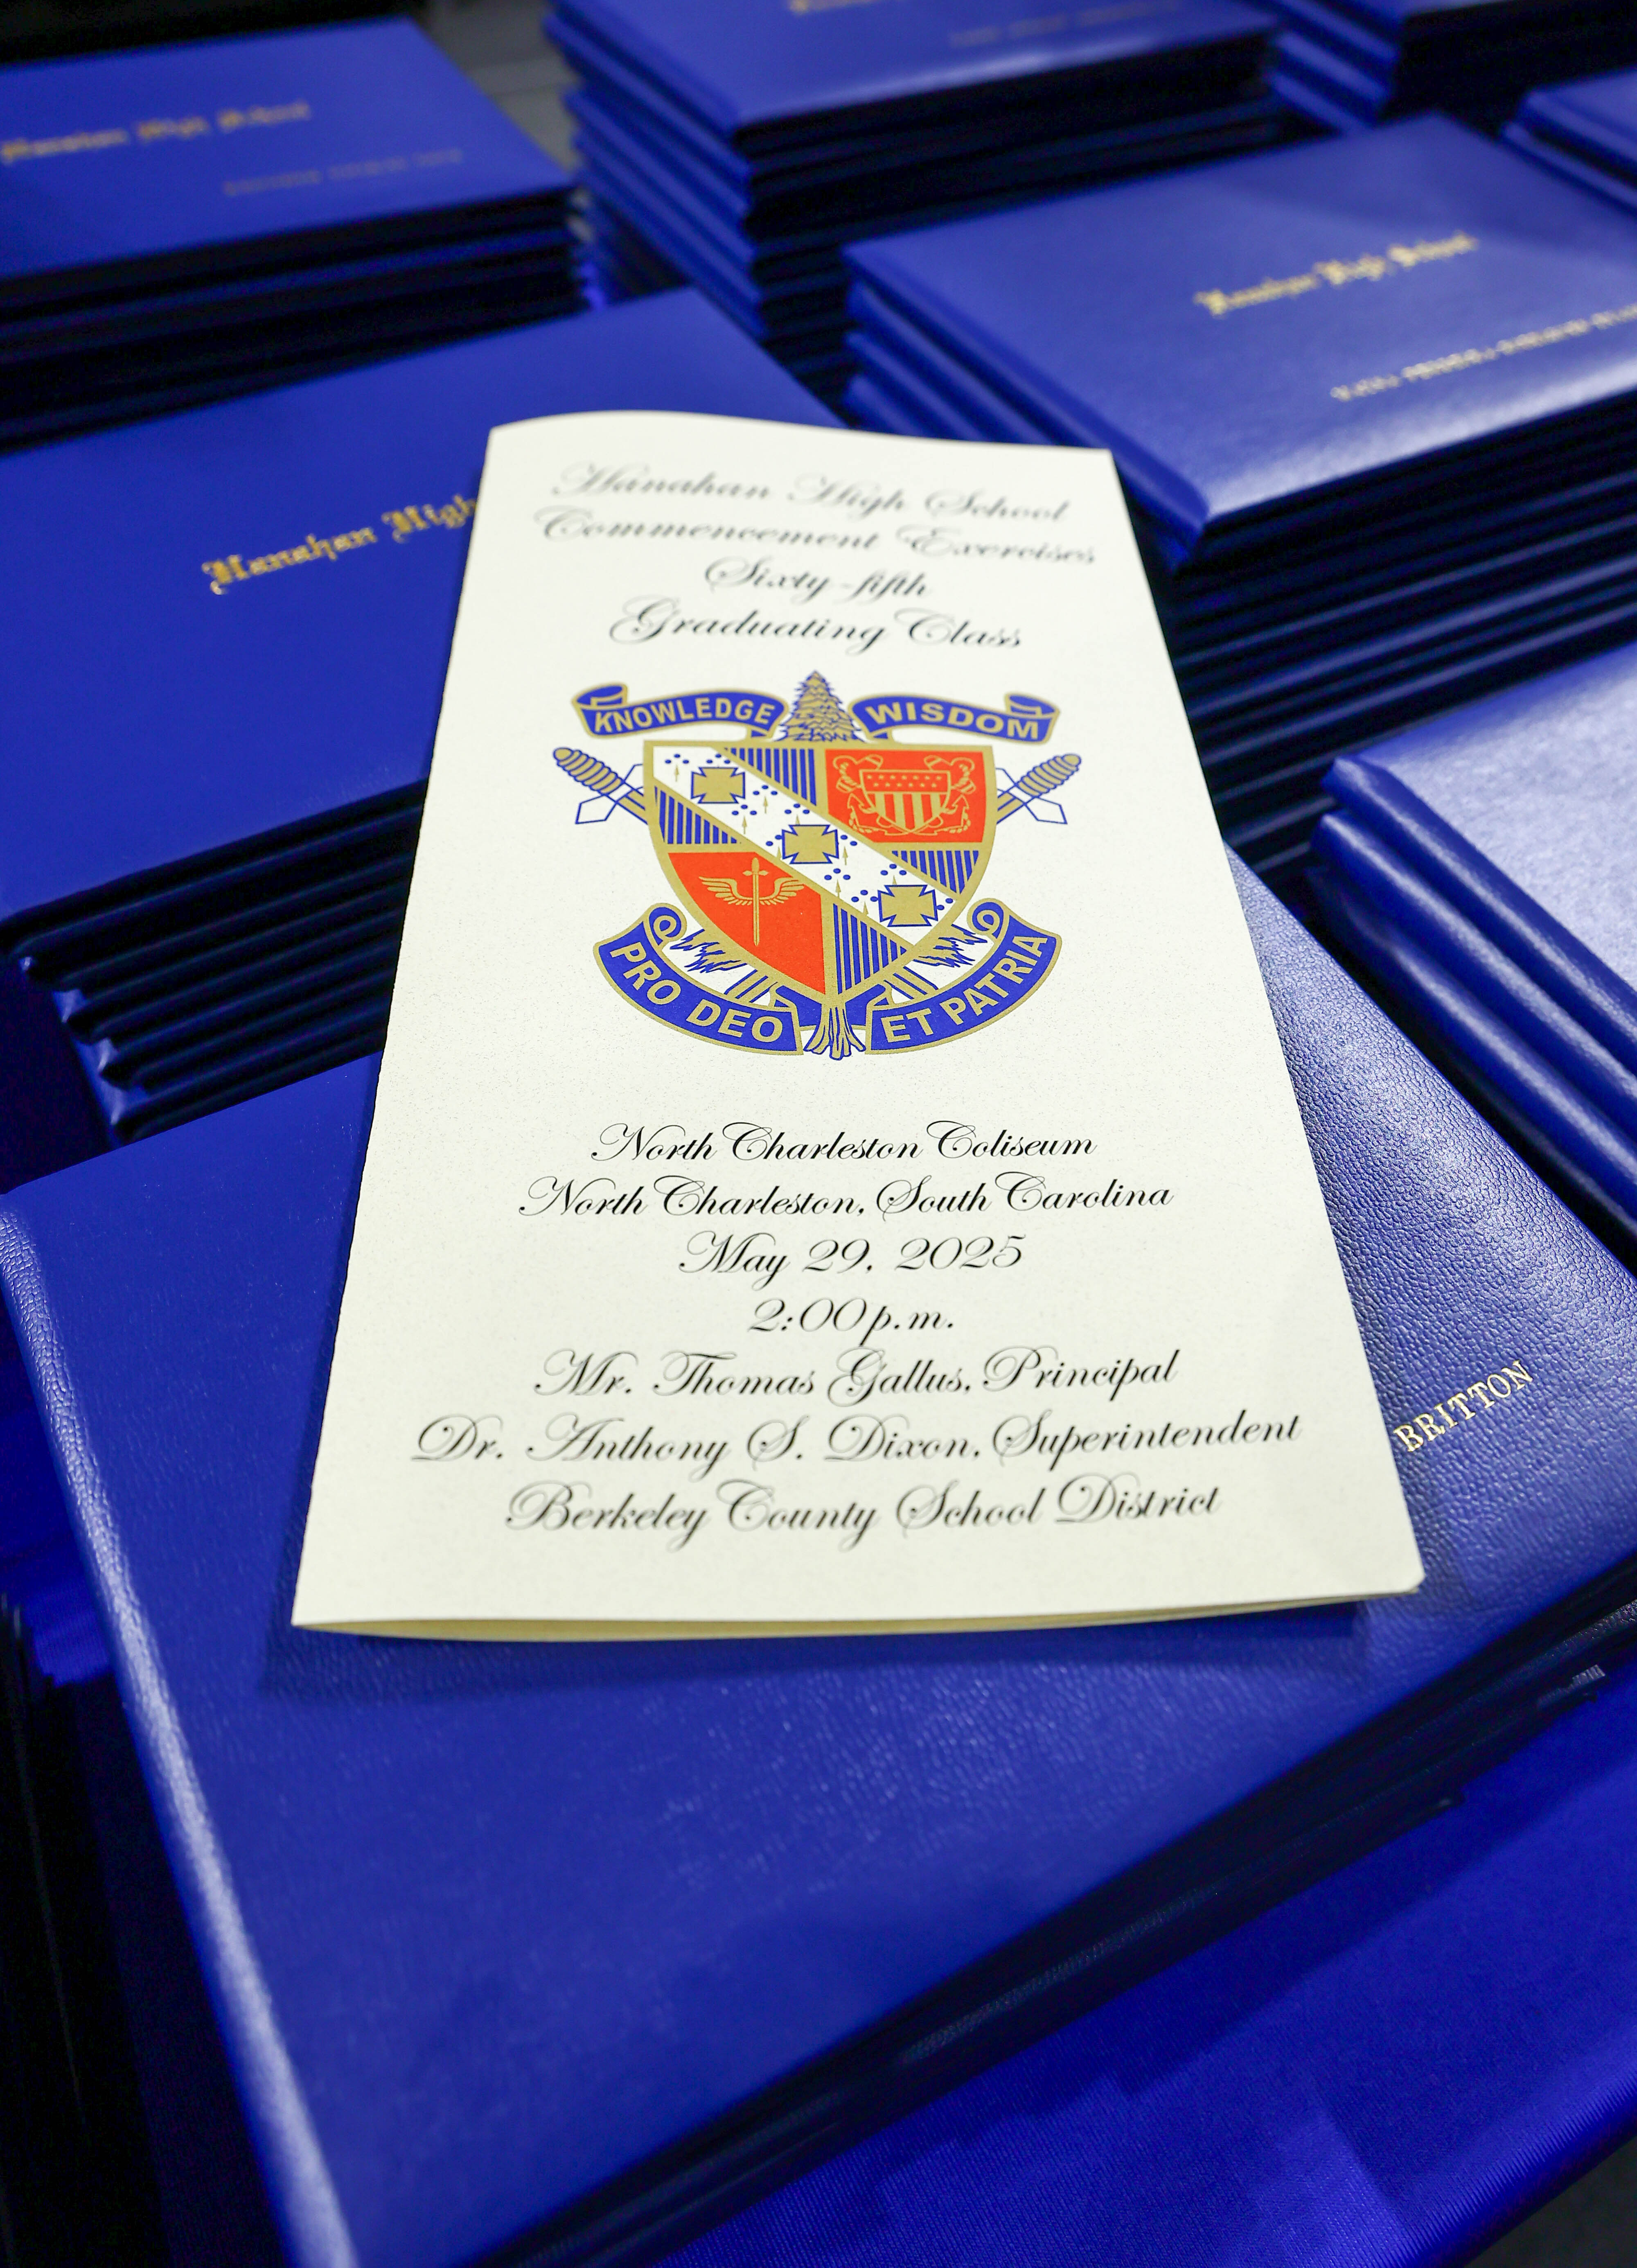 Hanahan High School
Hanahan High School
Hanahan High
Hanahan High School
Commencement Exercises
Sixty-fifth
Graduating Class
KNOWLEDGE WISDOM
PRO DEO ET PATRIA
North Charleston Coliseum
North Charleston, South Carolina
May 29, 2025
2:00 p.m.
Mr. Thomas Gallus, Principal
Dr. Anthony S. Dixon, Superintendent
Berkeley County School District
BRITTON